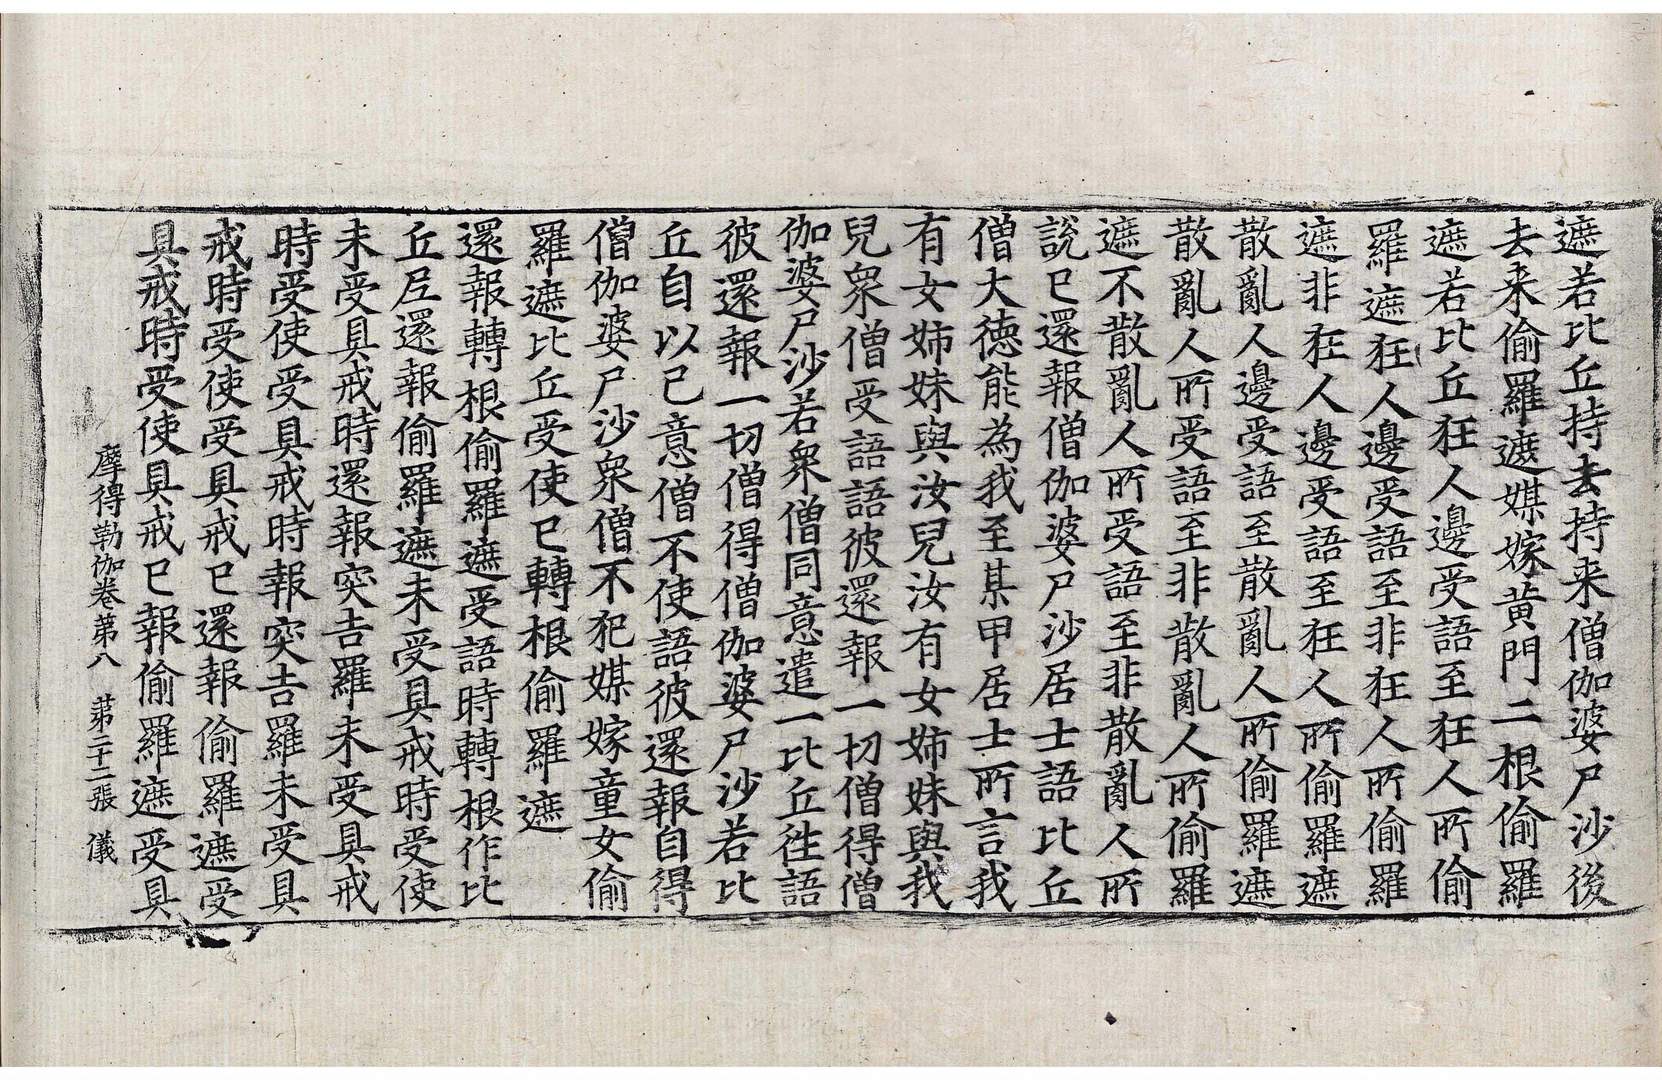 遮若比丘持去持来僧伽婆尸沙後
去来偷羅遮媒嫁黄門二根偷羅
遮若比丘狂人邊受語至狂人所偷
羅遮狂人邊受語至非狂人所偷羅
遮非狂人邊受語至狂人所偷羅遮
散亂人邊受語至散亂人所偷羅遮
散亂人所受語至非散亂人所偷羅
遮不散亂人所受語至非散亂人所
說已還報僧伽婆尸沙居士語比丘
僧大德能為我至某甲居士所言我
有女姉妹與汝兒汝有女姉妹與我
兒衆僧受語語彼還報一切僧得僧
伽婆尸沙若衆僧同意遣一比丘徃語
彼還報一切僧得僧伽婆尸沙若比
丘自以己意僧不使語彼還報自得
僧伽婆尸沙衆僧不犯媒嫁童女偷
羅遮比丘受使已轉根偷羅遮
還報轉根偷羅遮受語時轉根作比
丘尼還報偷羅遮未受具戒時受使
未受具戒時還報突吉羅未受具戒
時受使受具戒時報突吉羅未受具
戒時受使受具戒已還報偷羅遮受
具戒時受使具戒已報偷羅遮受具
摩得勒伽卷第八　第二十二張　儀